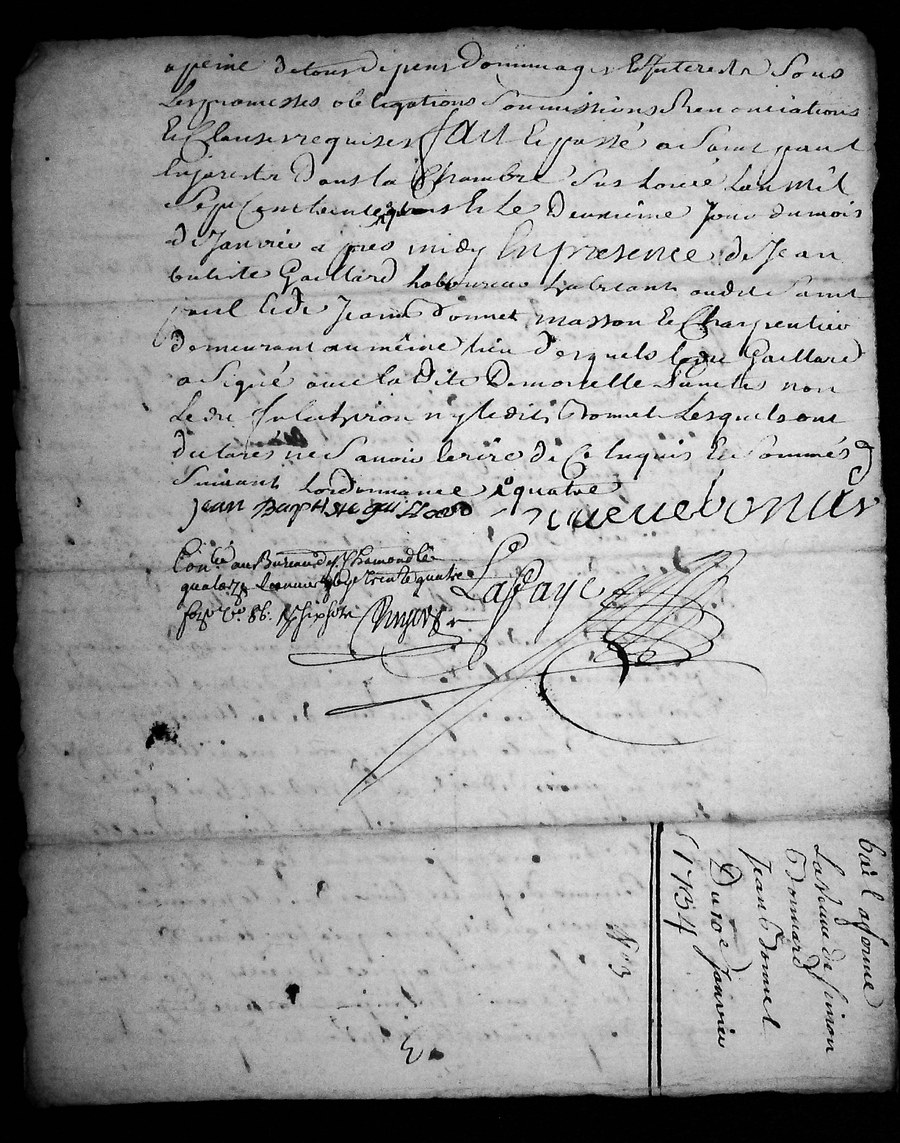 apeine de tous depens Dommages & Interests Sous
Les promesses obligations Soumissions Renonciations
Et Clauses requises fait & passé a Saint paul
En jarest dans la Chambre Sus Louée Lan Mil
Sept Cent trente quatre Et Le Deuxième Jour du mois
de Janvier apres midy En presence de Jean
batiste Gaillard laboureur habitant audit Saint
paul & de Jean Donnet masson & Charpentier
demeurant au même lieu desquels ledit Gaillard
a Signé avec la Dite Demoiselle non
Le dit ny ledit Donnet Lesquels ont
declarés ne Savoir Ecrire de Ce Enquis Et Sommés
Suivant Lordonnance quatre
jean Baptiste gaillard
Con.lé au Bureau de St Chamond le
quatorze Janvier 1734 trente quatre
Laffaye
bail a ferme
La veuve de Simon
Donnard
Jean Donnet
Du 10e Janvier
1734
N° 3